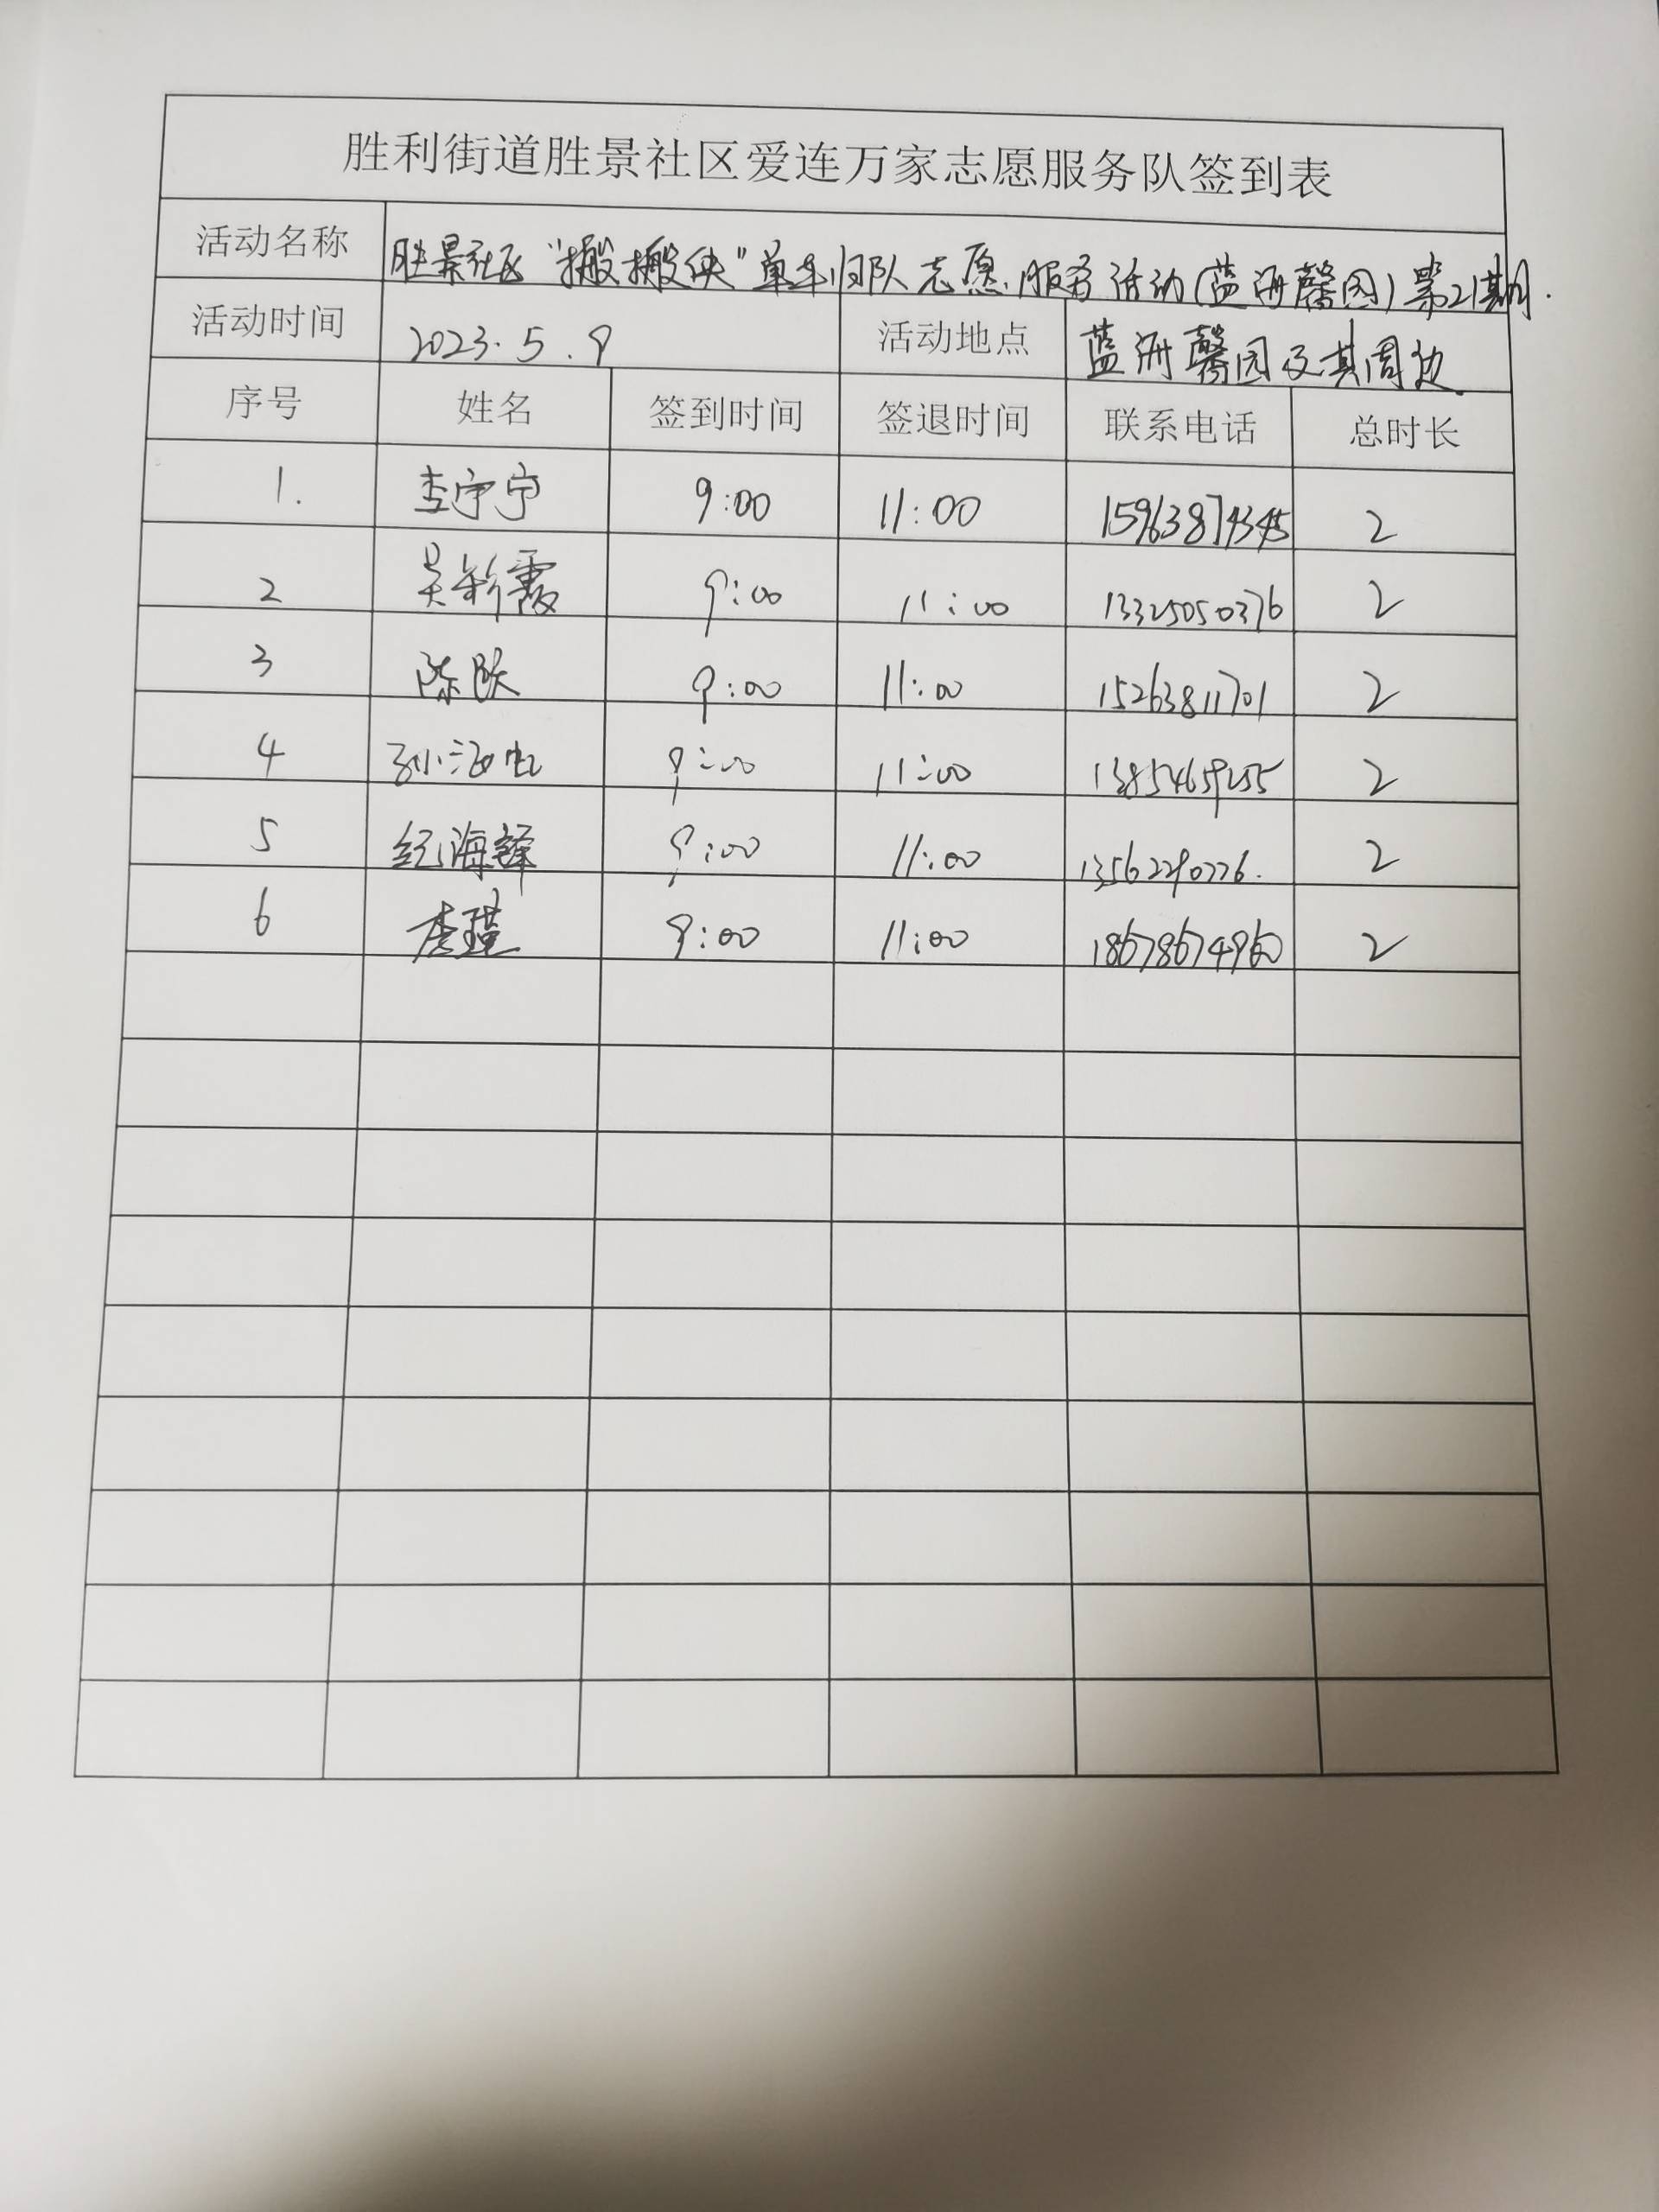 胜利街道胜景社区爱连万家志愿服务队签到表
活动名称 胜景社区“搬搬侠”单车归队志愿服务活动(蓝海馨园)第21期.
活动时间 2023.5.9 活动地点 蓝海馨园及其周边
序号 姓名 签到时间 签退时间 联系电话 总时长
1. 李宁宁 9:00 11:00 15963874345 2
2 吴彩霞 9:00 11:00 13325050376 2
3 陈跃 9:00 11:00 15263811701 2
4 孙 9:00 11:00 13854659255 2
5 纪海 9:00 11:00 2
6 9:00 11:00 18678674960 2